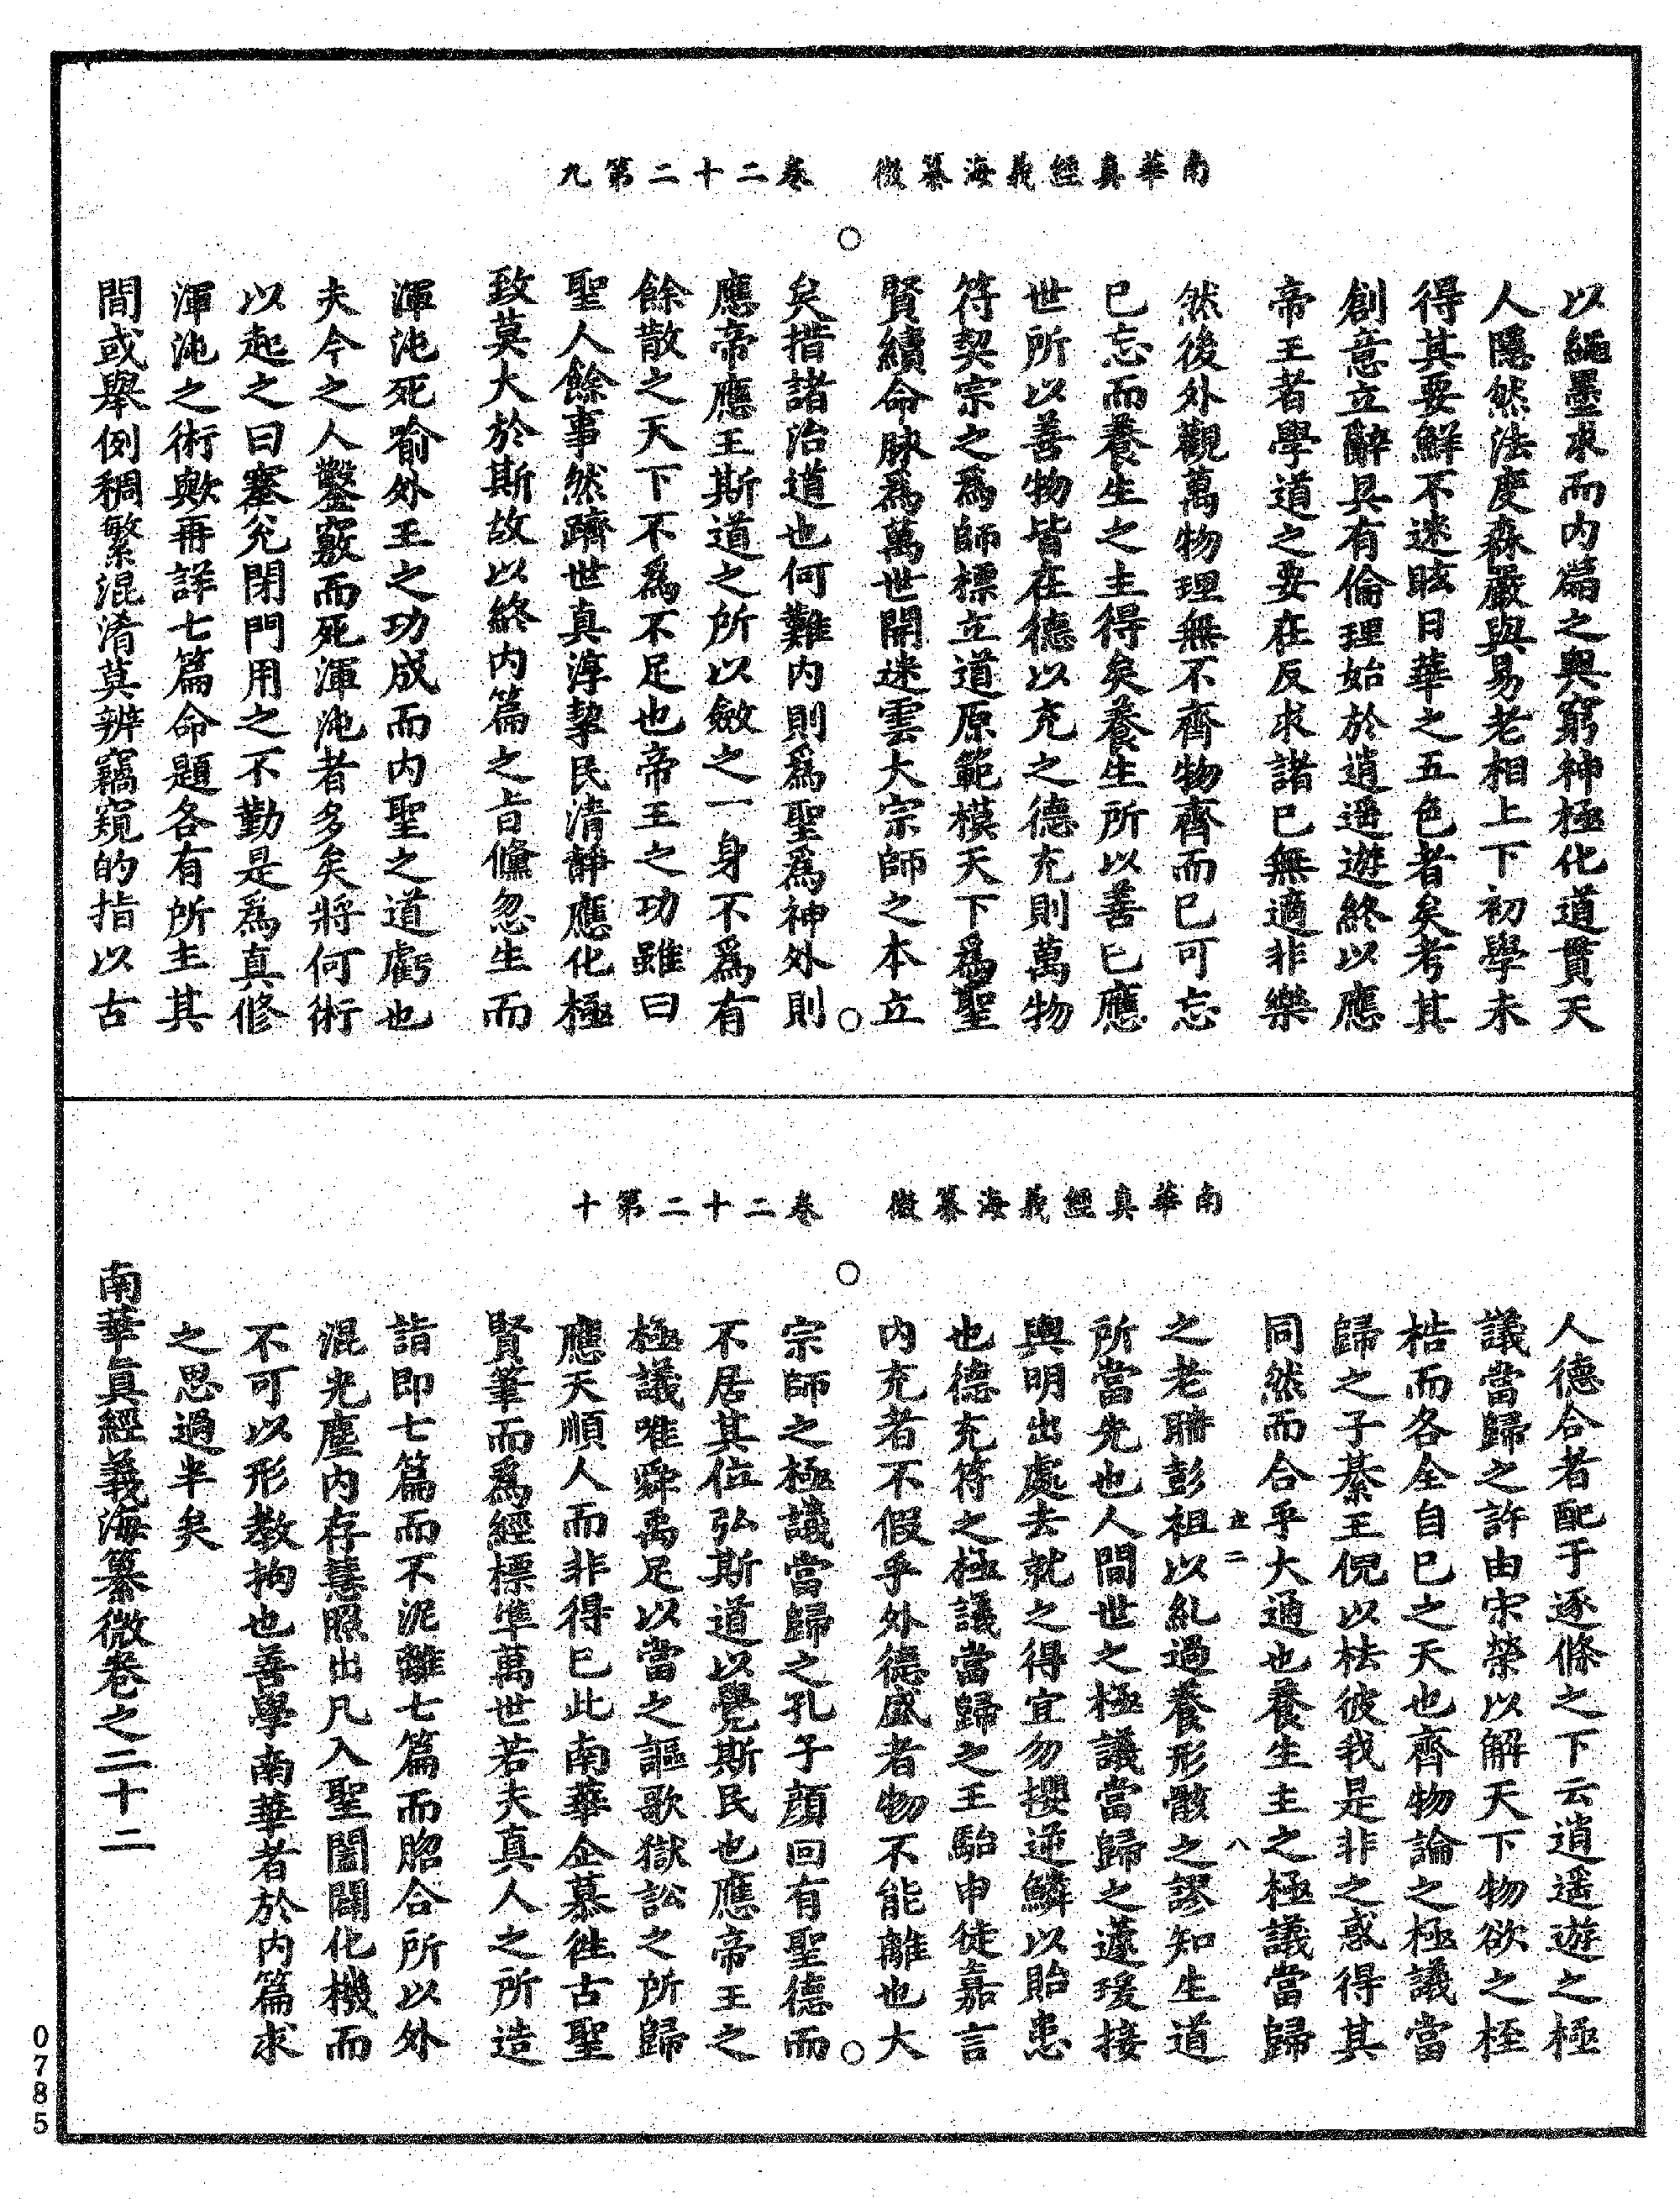 南華真經義海纂微　卷二十二第九
以繩墨求而内篇之奧窮神極化道貫天
人隱然法度森嚴與易老相上下初學未
得其要鮮不迷眩日華之五色者矣考其
創意立辭具有倫理始於逍遥遊終以應
帝王者學道之要在反求諸已無適非樂
然後外觀萬物理無不齊物齊而已可忘
已忘而養生之主得矣養生所以善已應
世所以善物皆在德以充之德充則萬物
符契宗之為師標立道原範模天下為聖
賢續命脉為萬世開迷雲大宗師之本立
矣措諸治道也何難内則為聖為神外則
應帝應王斯道之所以斂之一身不為有
餘散之天下不為不足也帝王之功雖曰
聖人餘事然躋世真淳挈民清静應化極
致莫大於斯故以終内篇之旨儵忽生而
渾沌死喻外王之功成而内聖之道虧也
夫今之人鑿竅而死渾沌者多矣將何術
以起之曰塞兊閉門用之不勤是為真修
渾沌之術歟再詳七篇命題各有所主其
間或舉例稠繁混淆莫辨竊窺的指以古
南華真經義海纂微　卷二十二第十
人德合者配于逐條之下云逍遥遊之極
議當歸之許由宋榮以解天下物欲之桎
梏而各全自已之天也齊物論之極議當
歸之子綦王倪以祛彼我是非之惑得其
同然而合乎大通也養生主之極議當歸
之老聃彭祖以糺過養形骸之謬知生道
所當先也人間世之極議當歸之蘧瑗接
輿明出處去就之得宜勿攖逆鱗以貽患
也德充符之極議當歸之王駘申徒嘉言
内充者不假乎外德盛者物不能離也大
宗師之極議當歸之孔子顔回有聖德而
不居其位弘斯道以覺斯民也應帝王之
極議唯舜禹足以當之謳歌獄訟之所歸
應天順人而非得已此南華企慕徃古聖
賢筆而為經標凖萬世若夫真人之所造
詣即七篇而不泥離七篇而脗合所以外
混光塵内存慧照出凡入聖闔闢化機而
不可以形教拘也善學南華者於内篇求
之思過半矣
南華真經義海纂微卷之二十二
二
八
0785